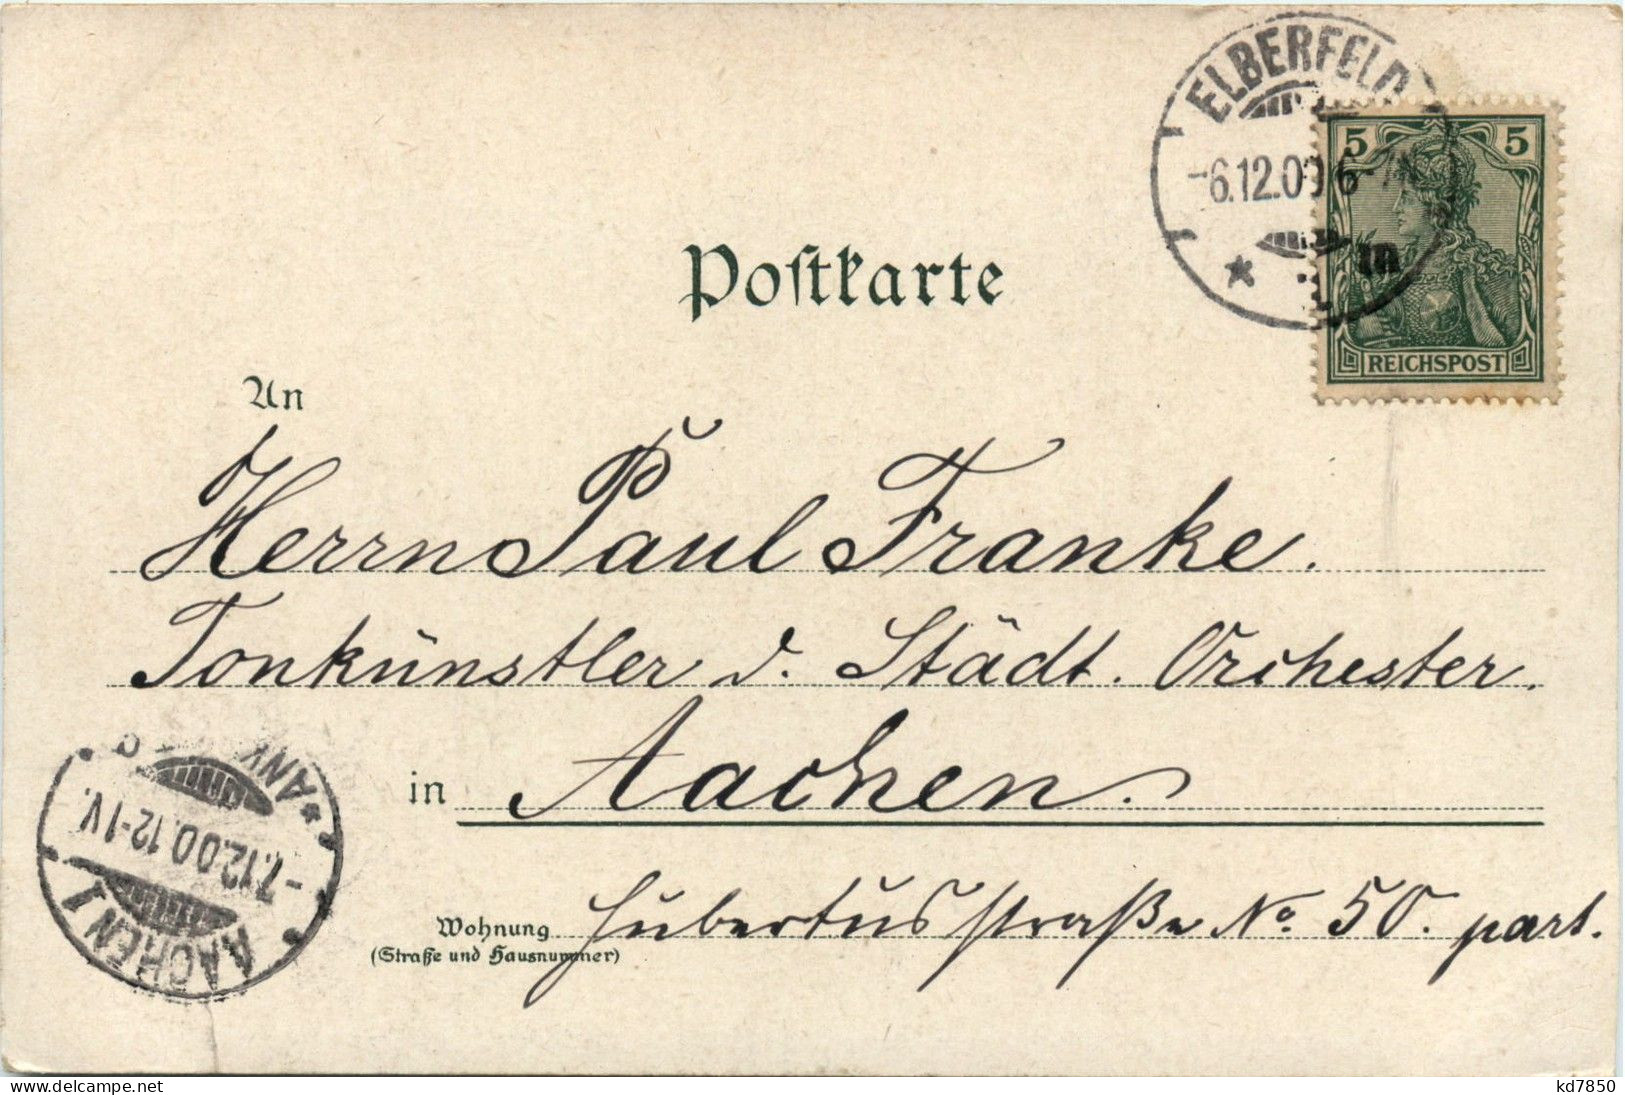 ELBERFELD
-6.12.00 6-7N
5 5
REICHSPOST
Postkarte
An
Herrn Paul Franke.
Tonkünstler d. Städt. Orchester.
in Aachen.
Wohnung Hubertusstraße No. 50. part.
(Straße und Hausnummer)
AACHEN 1
-7.12.00.12-1V.
* ANK
kd7850